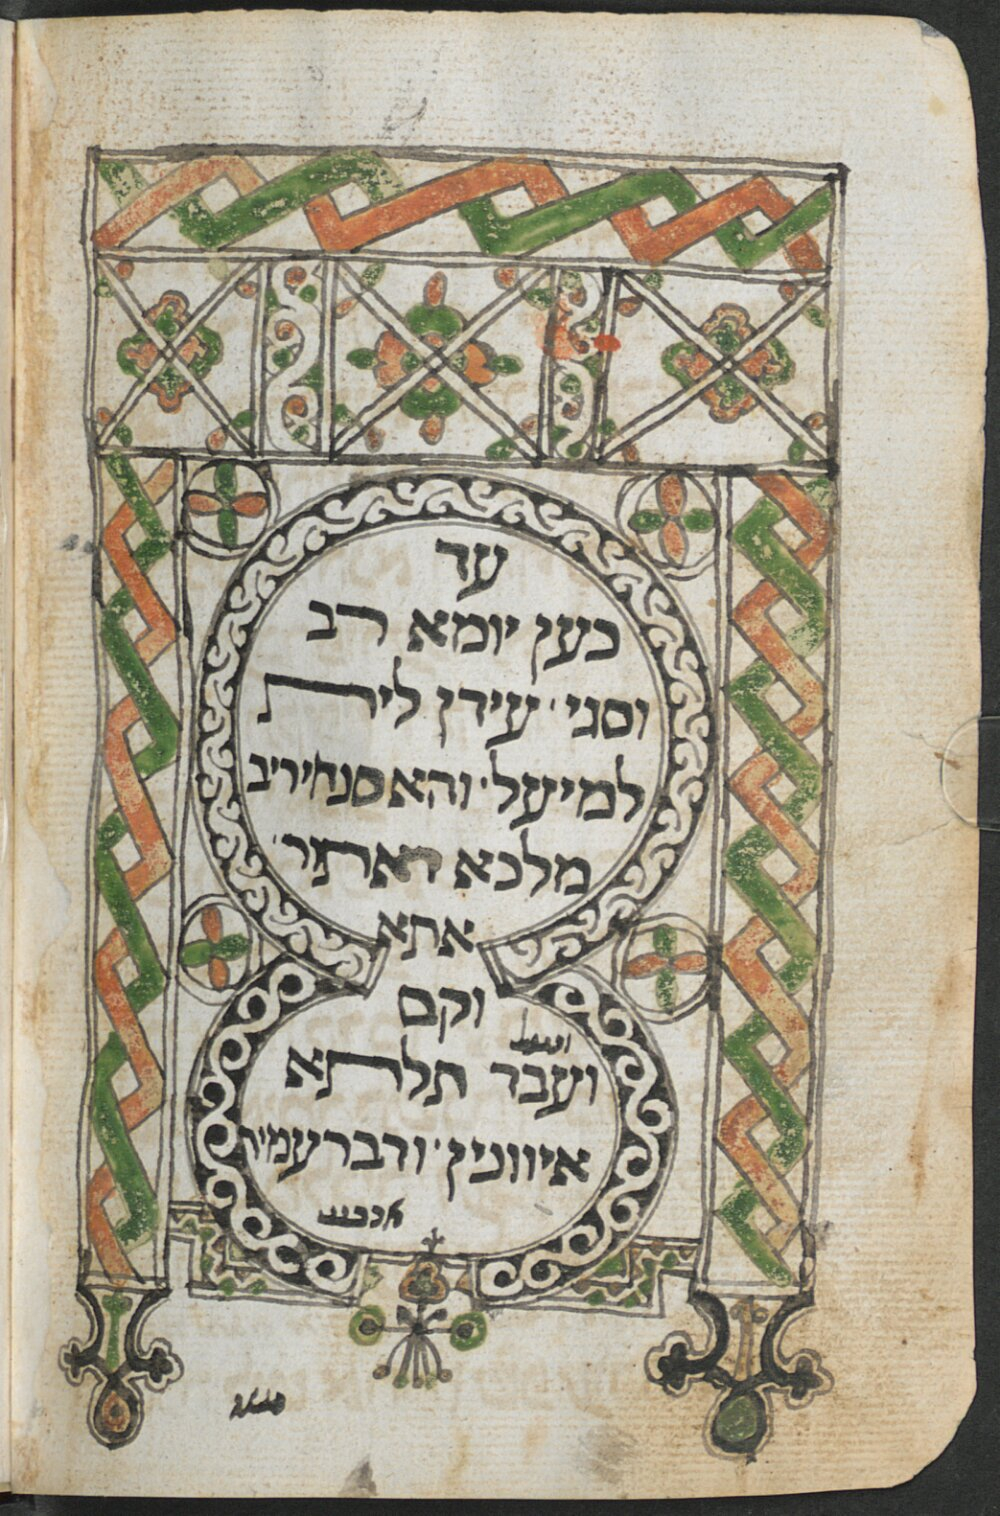 עד
כען יומא רב
וסגי עידן לית
למיעל והא סנחיריב
מלכא דאתור
אתא
וקם
ועבר תלתא
איוונין ודבר עמיה